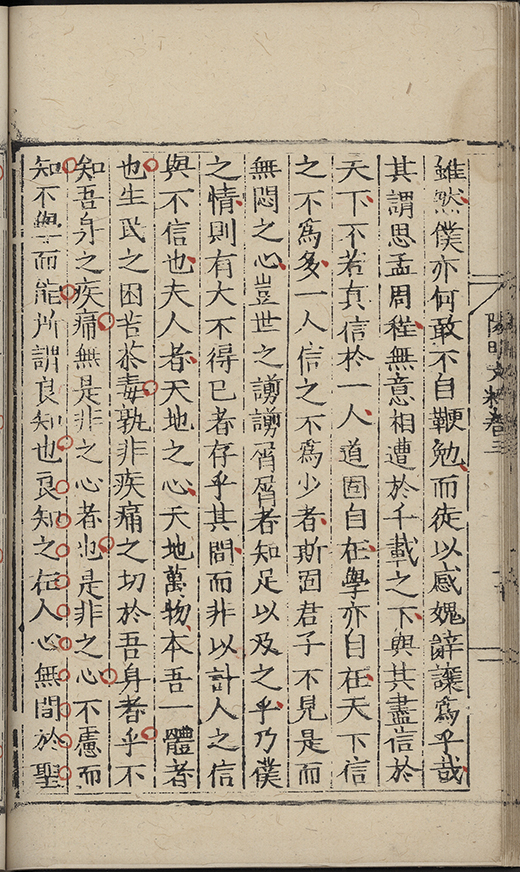 雖然僕亦何敢不自鞭勉而徒以感媿辭讓爲乎哉
其謂思孟周程無意相遭於千載之下與其盡信於
天下不若真信於一人道固自在學亦自在天下信
之不爲多一人信之不爲少者斯固君子不見是而
無悶之心豈世之謭謭屑屑者知足以及之乎乃僕
之情則有大不得已者存乎其間而非以計人之信
與不信也夫人者天地之心天地萬物本吾一體者
也生民之困苦荼毒孰非疾痛之切於吾身者乎不
知吾身之疾痛無是非之心者也是非之心不慮而
知不學而能所謂良知也良知之在人心無間於聖
陽明文粹卷三